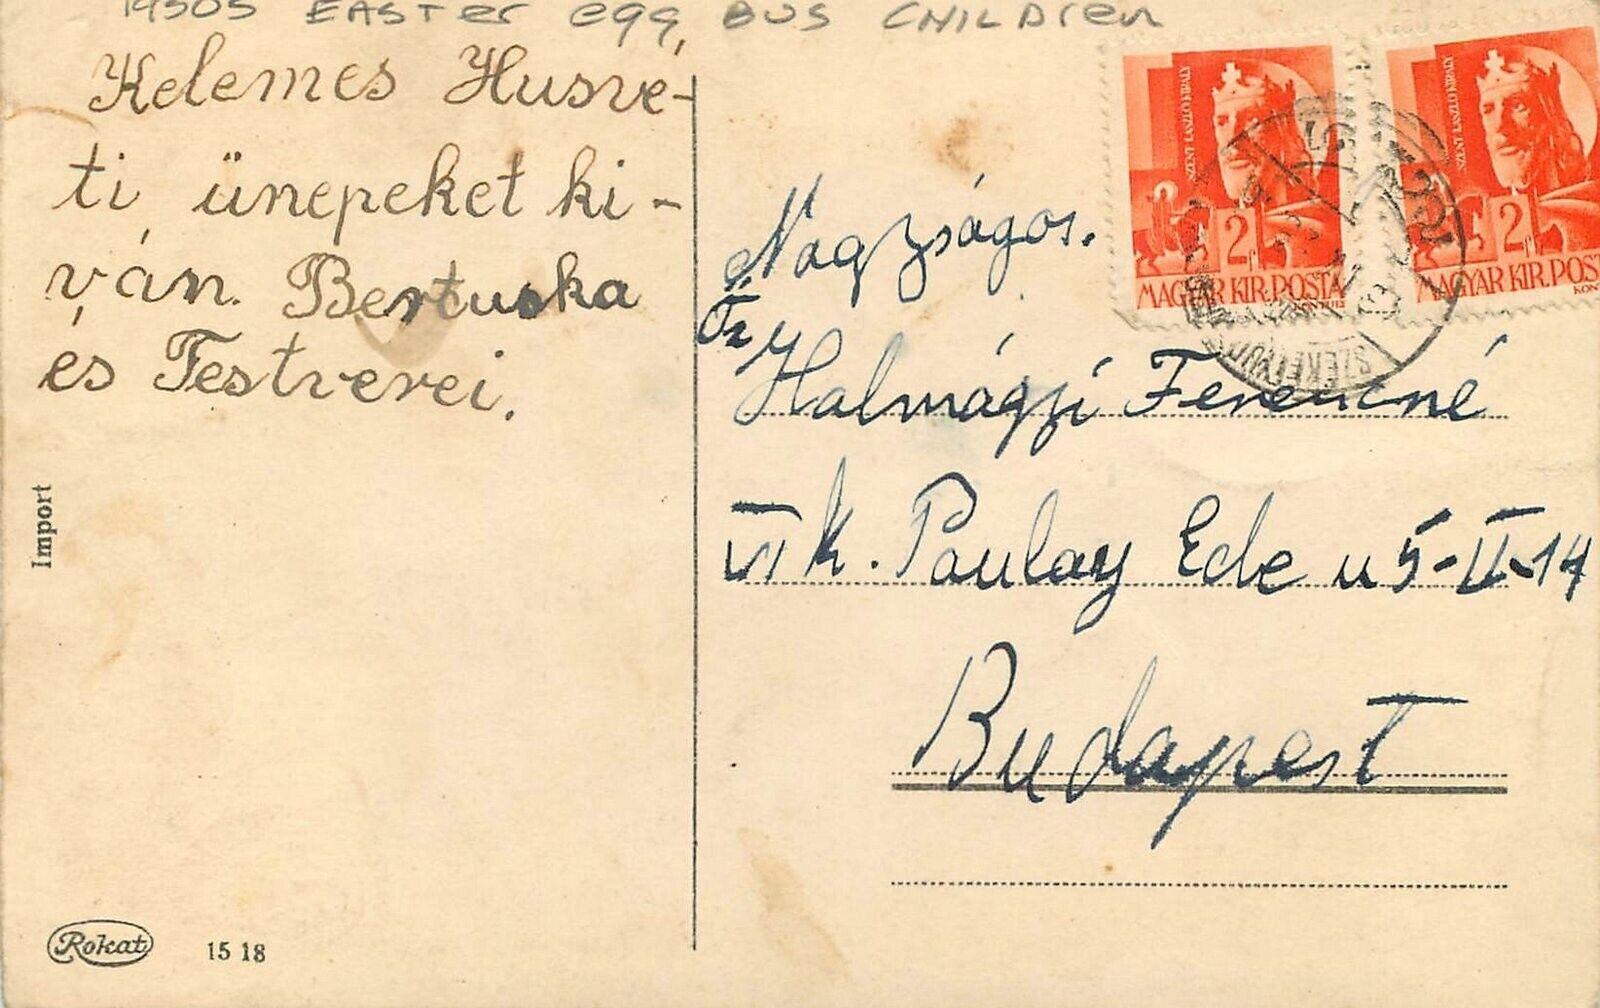 1930s EASTER egg, BUS CHILDREN
Kelemes Husvé-
ti ünepeket ki-
ván. Bertuska
és Testverei.
Import
Rokat 15 18
SZENT LÁSZLÓ KIRÁLY
2f
MAGYAR KIR. POSTA
SZENT LÁSZLÓ KIRÁLY
2f
MAGYAR KIR. POST
Nagyságos.
Öz
Halmágyi Ferencné
VI K. Paulay Ede u 5-II-14
Budapest